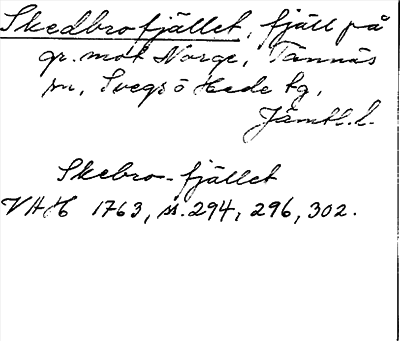 Skedbrofjället, fjäll på
gr. mot Norge, Tännäs
sn, Svegs o Hede tg,
Jämtl. l.
Skebro-fjället
VAH 1763, ss. 294, 296, 302.